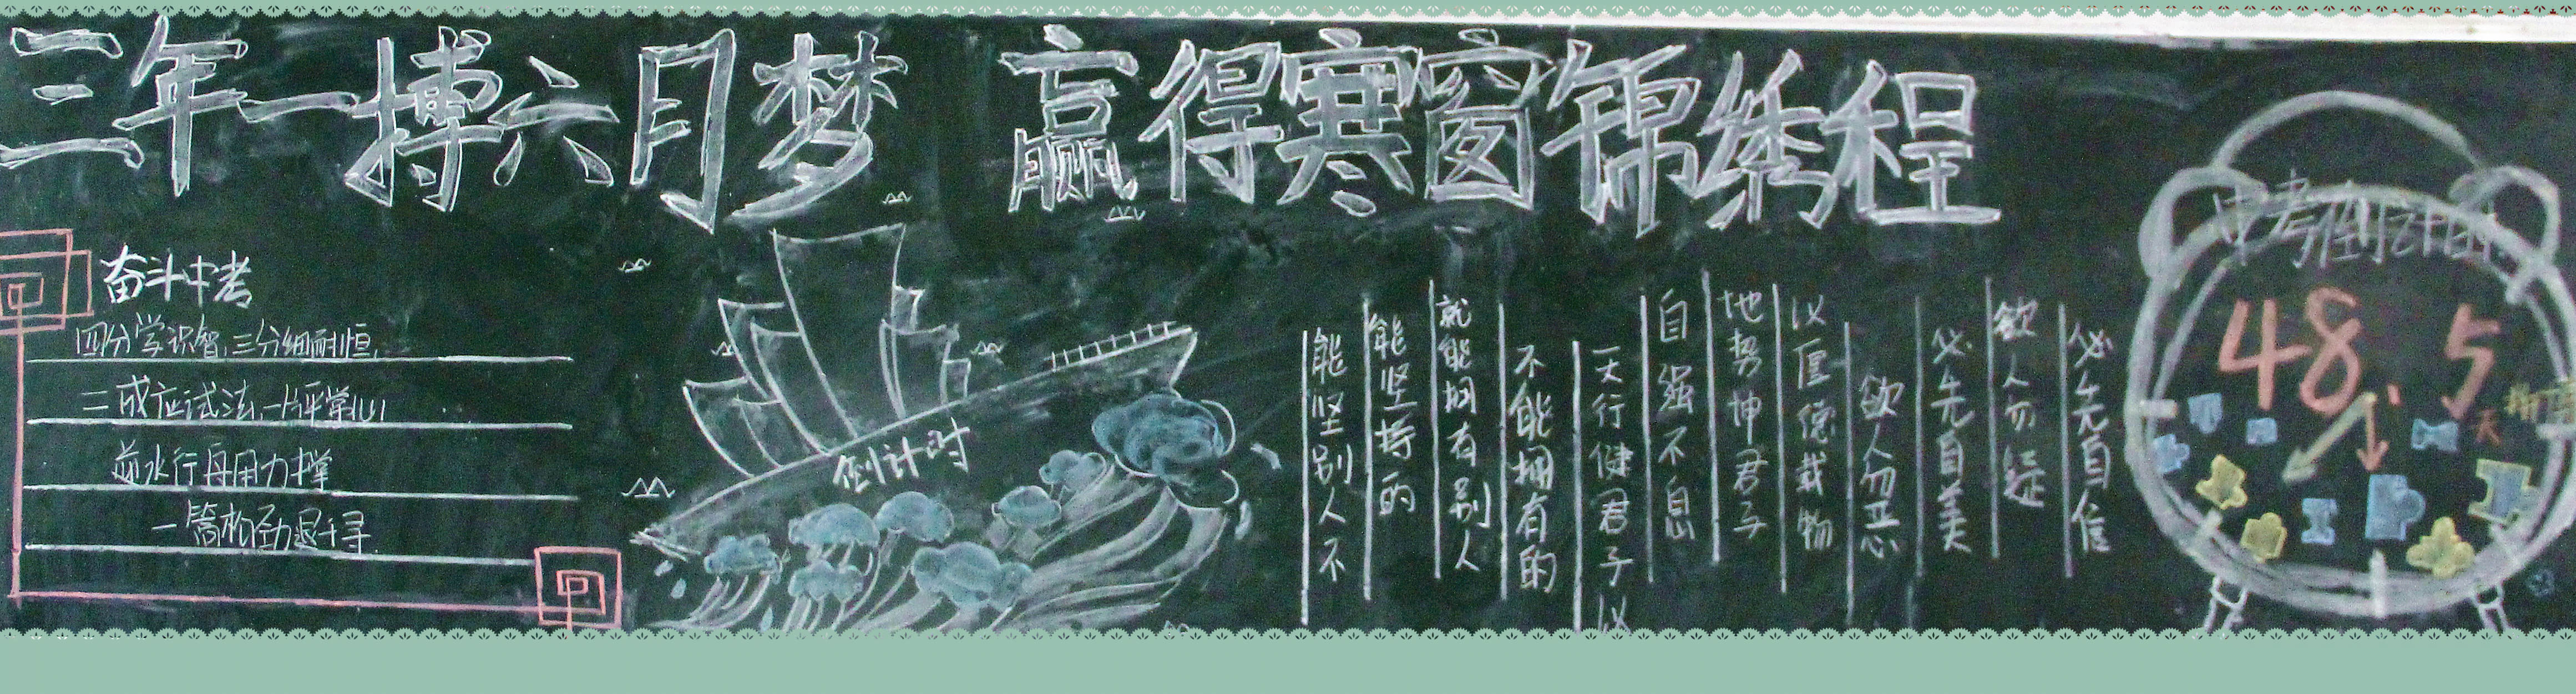 三年一搏六月梦 赢得寒窗锦绣程
奋斗中考
四分学识智,三分细耐恒,
二成应试法,一片平常心
逆水行舟用力撑
一篙松劲退千寻
倒计时
能坚别人不
能坚持的
就能拥有别人
不能拥有的
天行健君子以
自强不息
地势坤君子
以厚德载物
欲人勿恶
必先自美
欲人勿疑
必先自信
中考倒计时
48.5
天